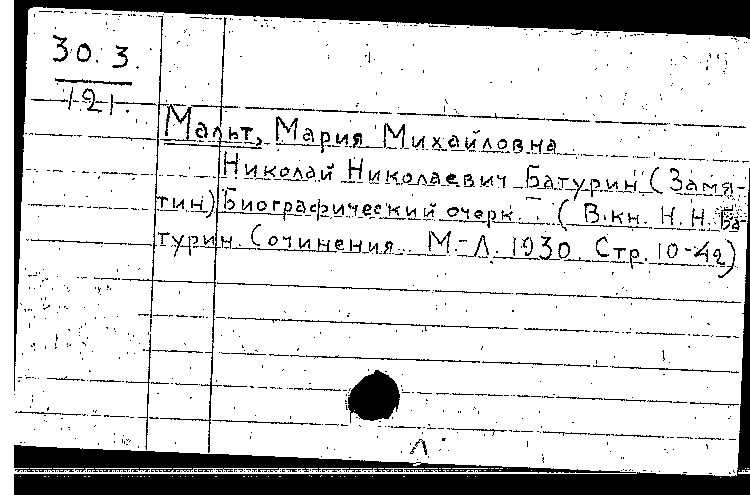 30.3.
121.
Мальт, Мария Михайловна
Николай Николаевич Батурин (Замя-
тин) Биографический очерк. – (В кн. Н. Н. Ба-
турин. Сочинения. М.-Л. 1930. Стр. 10-42)